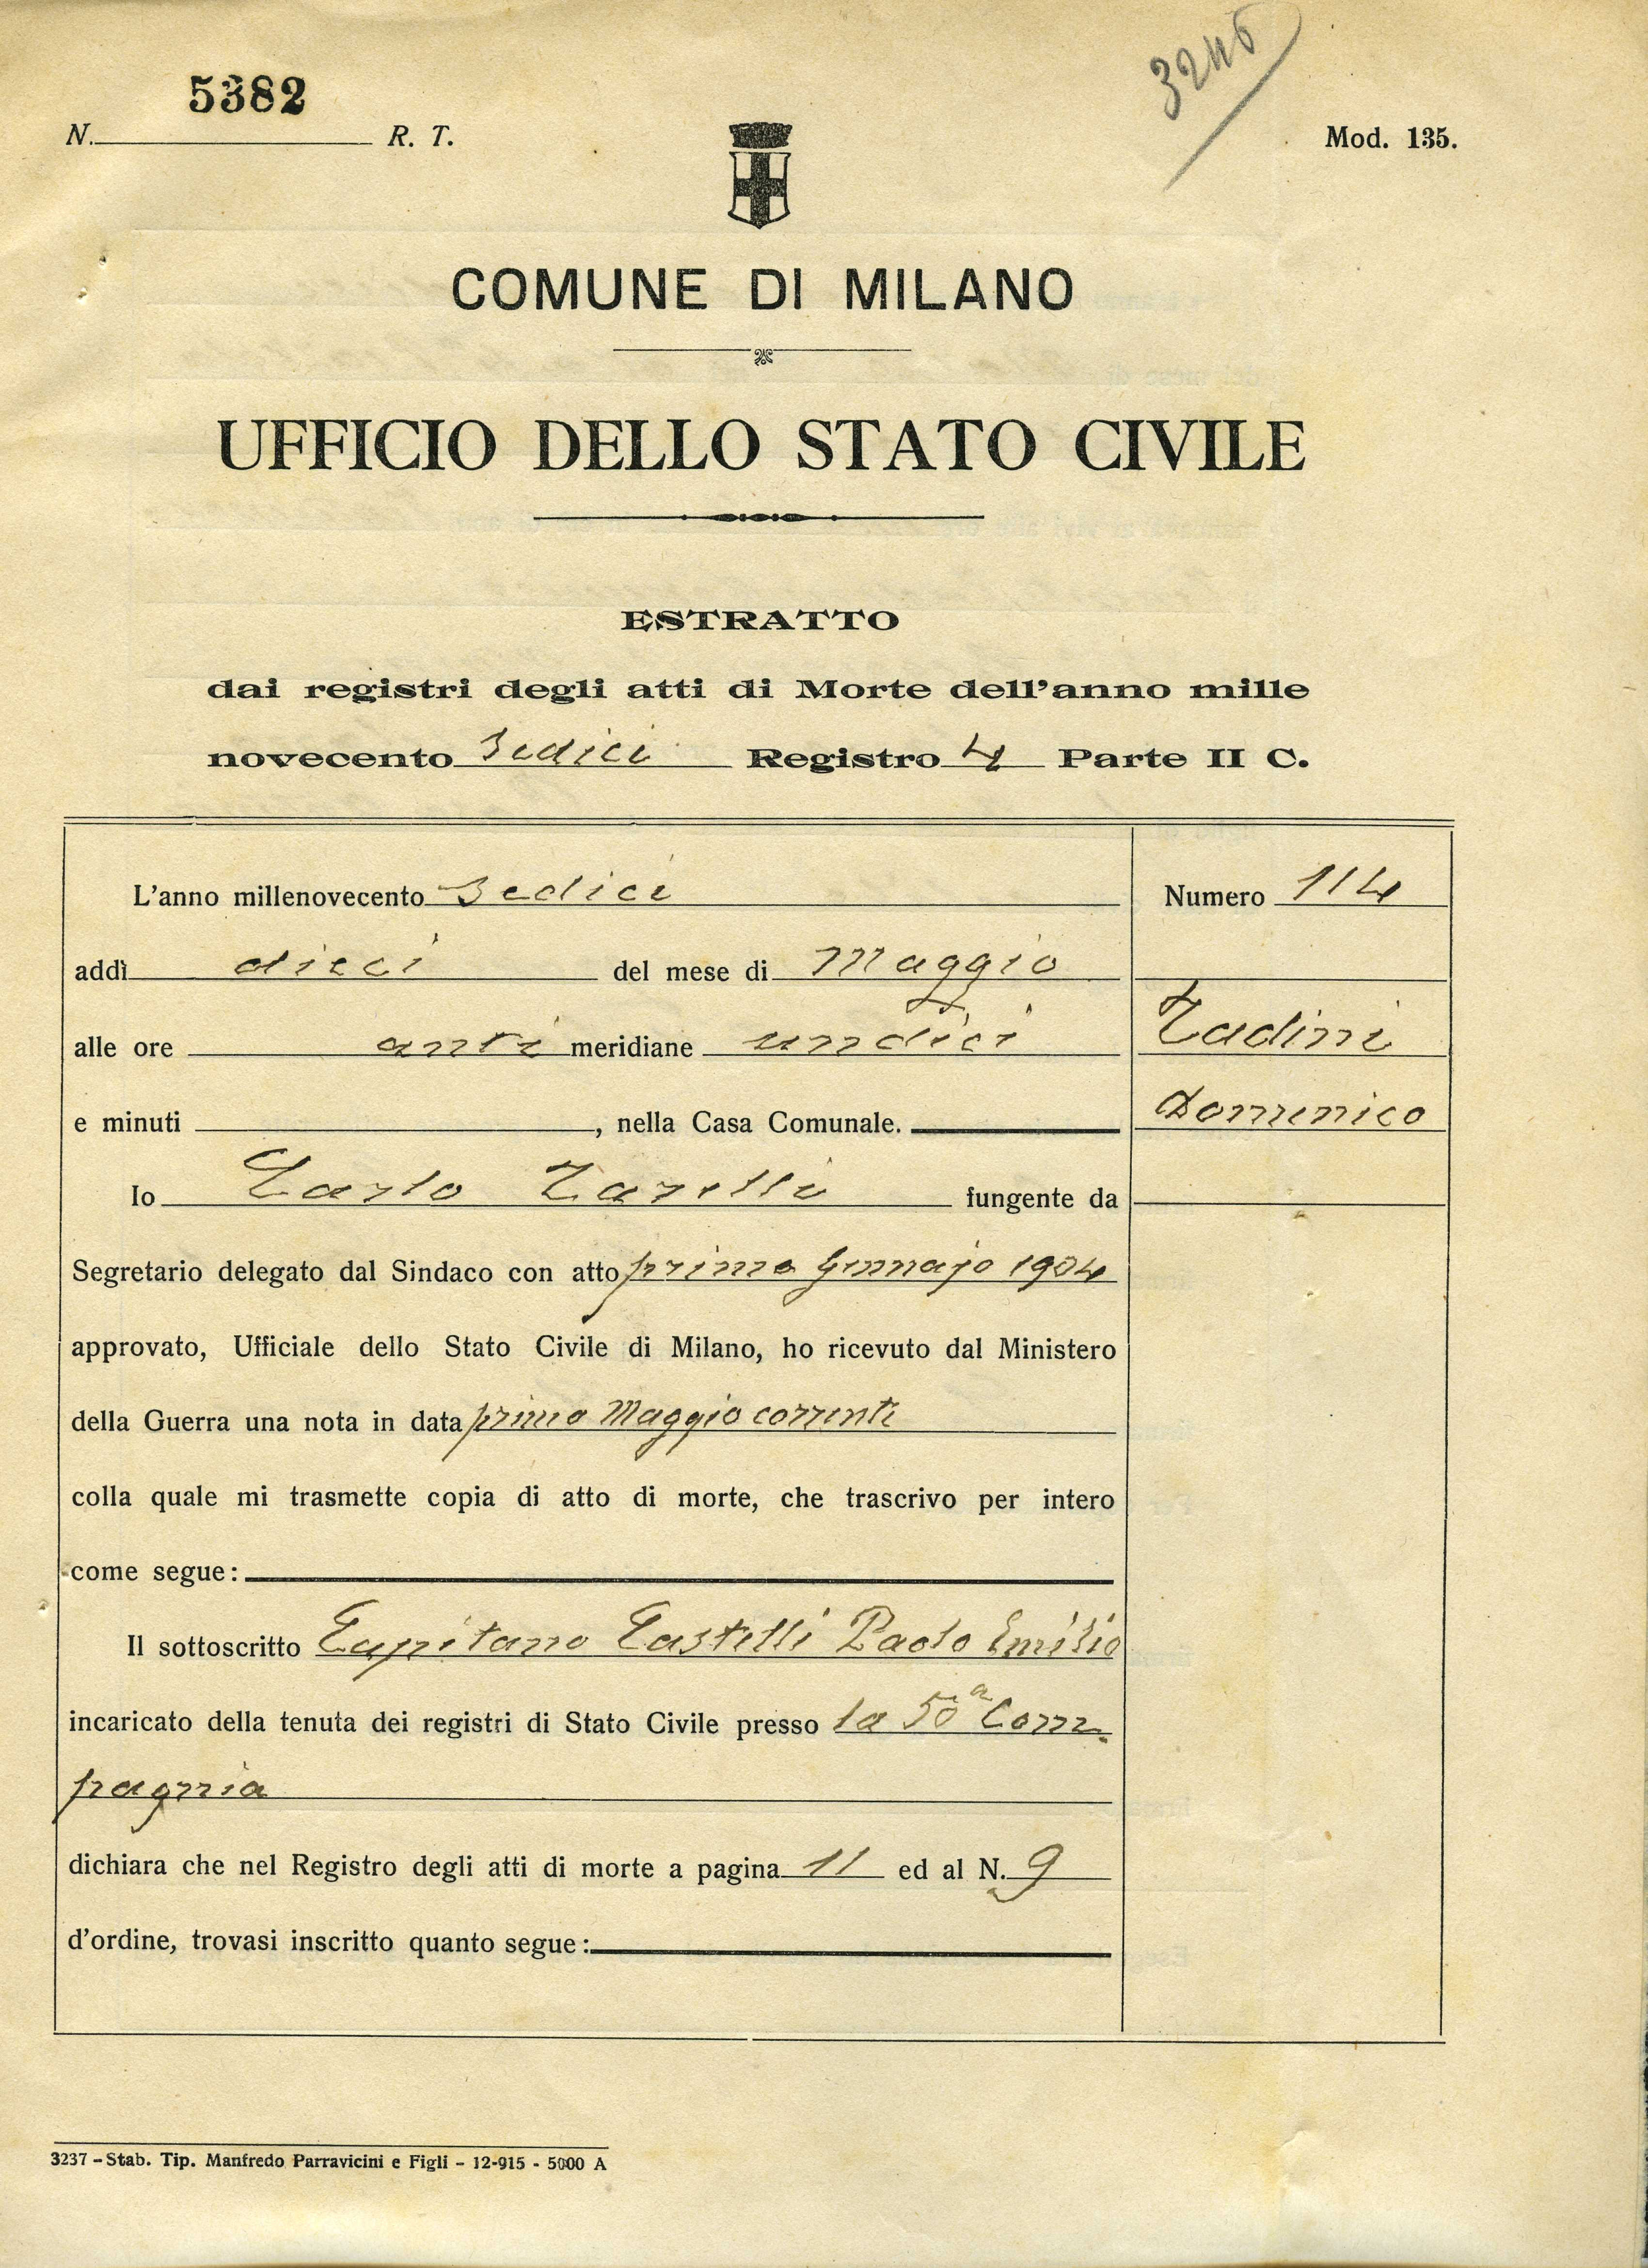 5382
N. R. T.
3246
Mod. 135.
COMUNE DI MILANO
UFFICIO DELLO STATO CIVILE
ESTRATTO
dai registri degli atti di Morte dell'anno mille
novecento Sedici Registro 4 Parte II C.
L'anno millenovecento Sedici
Numero 114
addì dieci del mese di Maggio
alle ore anti meridiane undici
Tadini
e minuti , nella Casa Comunale.
Domenico
Io Carlo fungente da
Segretario delegato dal Sindaco con atto primo Gennajo 1904
approvato, Ufficiale dello Stato Civile di Milano, ho ricevuto dal Ministero
della Guerra una nota in data primo Maggio corrente
colla quale mi trasmette copia di atto di morte, che trascrivo per intero
come segue:
Il sottoscritto Capitano Castelli Paolo Emilio
incaricato della tenuta dei registri di Stato Civile presso la 50a Com-
pagnia
dichiara che nel Registro degli atti di morte a pagina 11 ed al N. 9
d'ordine, trovasi inscritto quanto segue:
3237 - Stab. Tip. Manfredo Parravicini e Figli - 12-915 - 5000 A